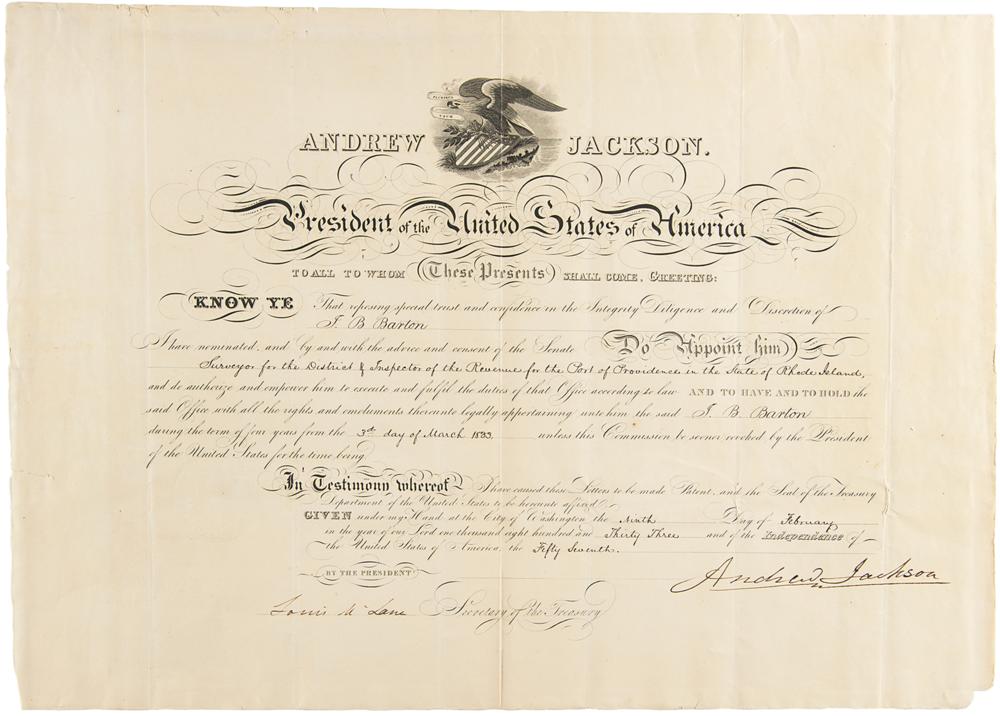 PLURIBUS
UNUM
ANDREW JACKSON.
President of the United States of America
TO ALL TO WHOM These Presents SHALL COME, GREETING:
KNOW YE That reposing special trust and confidence in the Integrity Diligence and Discretion of
I. B. Barton
I have nominated, and by and with the advice and consent of the Senate Do Appoint him
Surveyor for the District & Inspector of the Revenue for the Port of Providence in the State of Rhode Island,
and do authorize and empower him to execute and fulfil the duties of that Office according to law AND TO HAVE AND TO HOLD the
said Office with all the rights and emoluments thereunto legally appertaining unto him the said I. B. Barton
during the term of four years from the 3rd day of March 1833, unless this Commission be sooner revoked by the President
of the United States for the time being.
In Testimony whereof I have caused these Letters to be made Patent, and the Seal of the Treasury
Department of the United States to be hereunto affixed
GIVEN under my Hand at the City of Washington the Ninth Day of February
in the year of our Lord one thousand eight hundred and Thirty Three and of the Independence of
the United States of America, the Fifty Seventh.
BY THE PRESIDENT
Andrew Jackson
Louis McLane Secretary of the Treasury